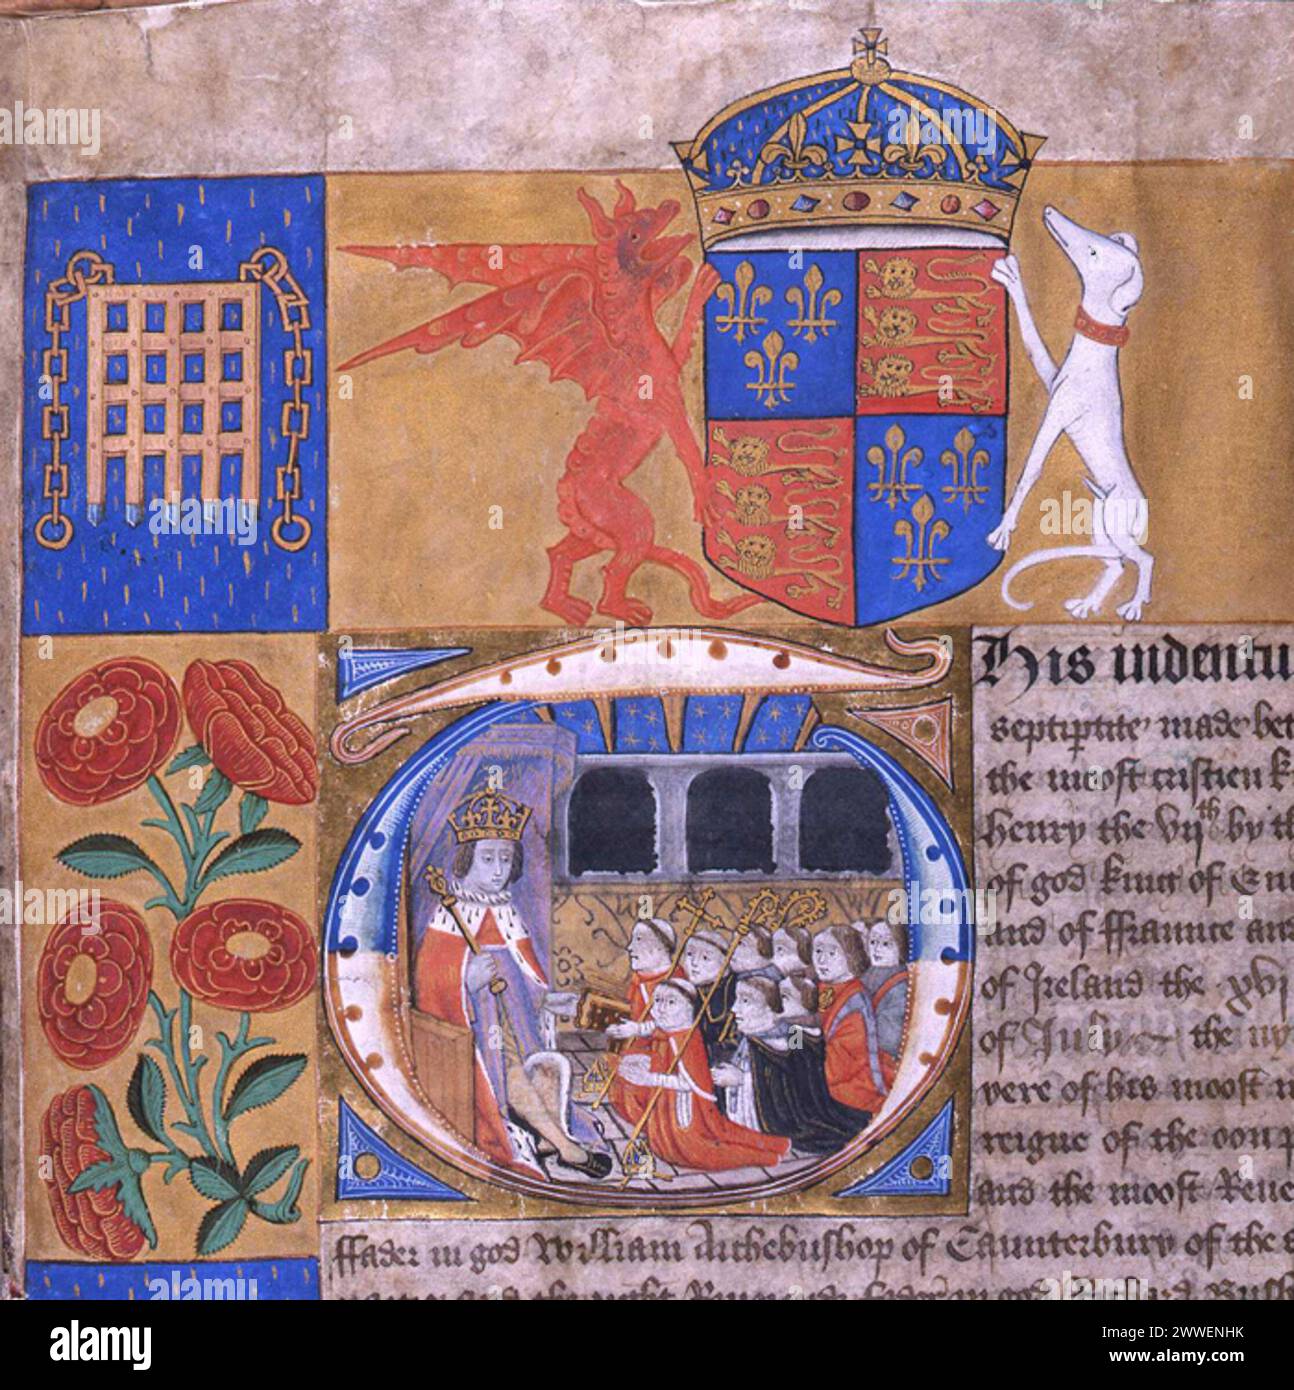 his indentu
septiptite made bet
the moost cristien k
henry the vijth by th
of god king of En
and of ffraunce an
of Ireland the xvj
of July the
yere of his moost n
reigne of the oon p
and the moost Reve
ffader in god William Archebusshop of Caunterbury of the s
alamy
Image ID: 2WWENHK
www.alamy.com